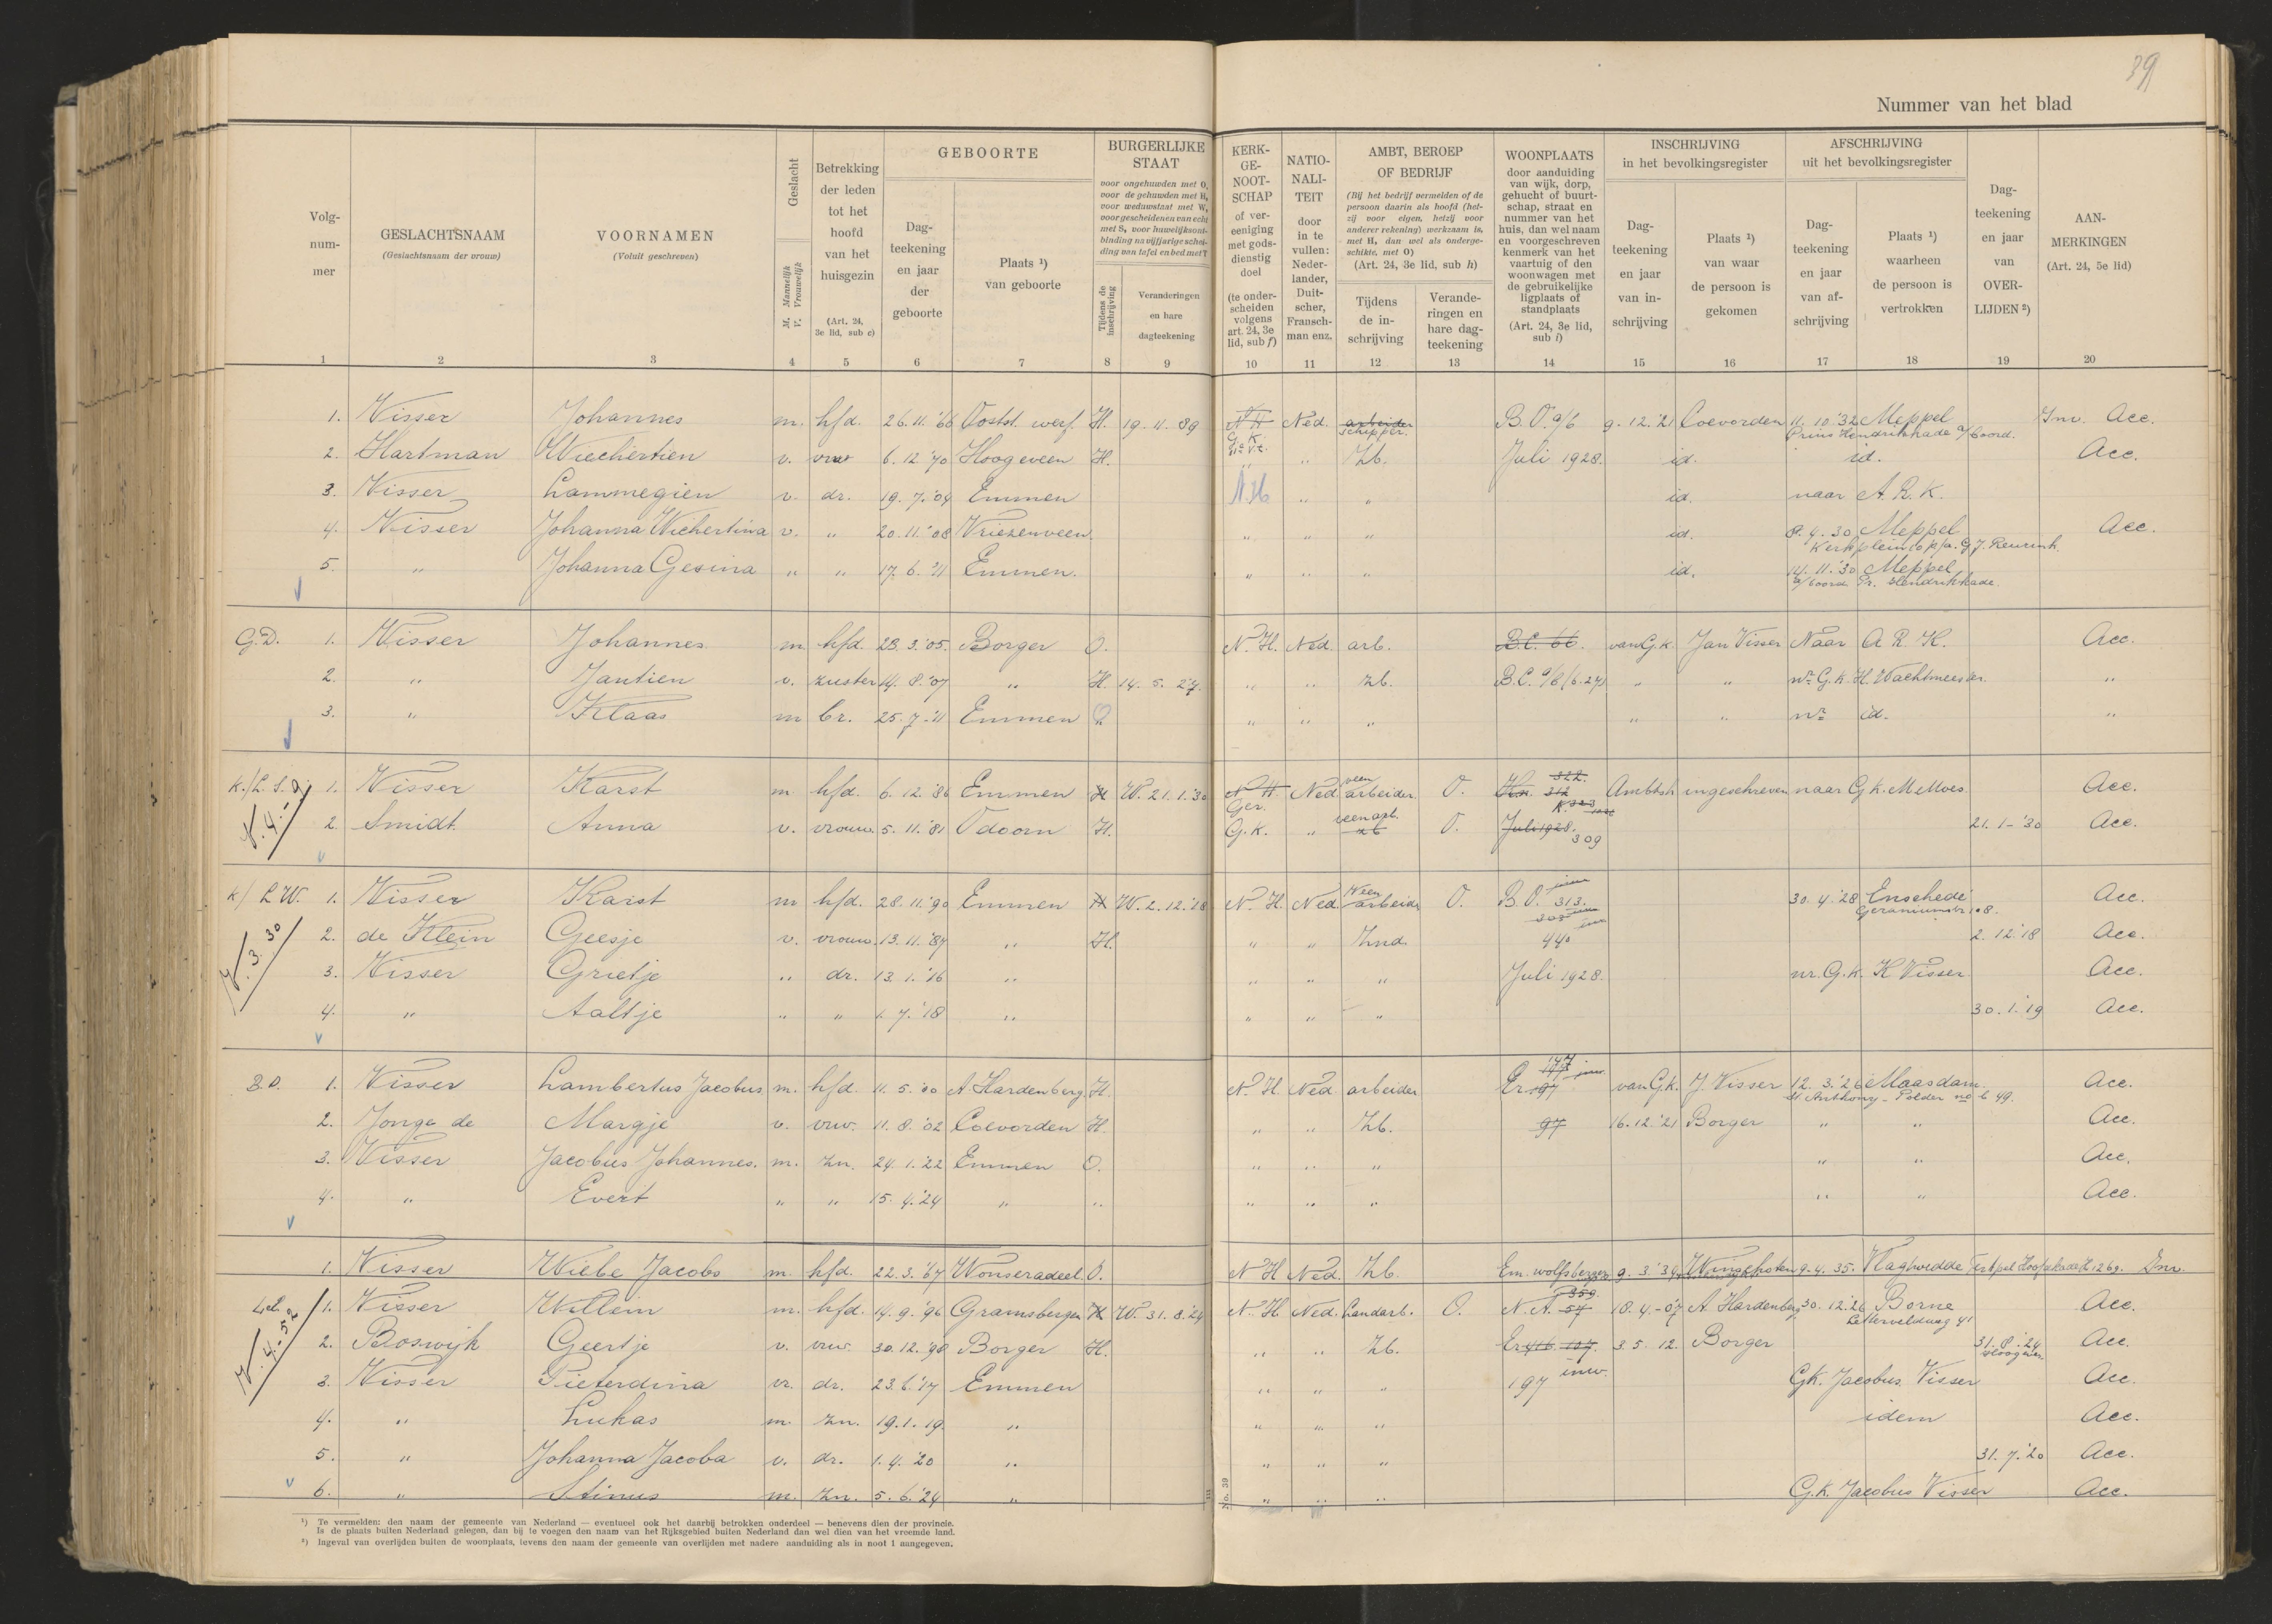 39
Nummer van het blad
Volg-nummer
GESLACHTSNAAM (Geslachtsnaam der vrouw)
VOORNAMEN (Voluit geschreven)
Geslacht M. Mannelijk V. Vrouwelijk
Betrekking der leden tot het hoofd van het huisgezin (Art. 24, 3e lid, sub c)
GEBOORTE
Dagteekening en jaar der geboorte
Plaats ¹) van geboorte
BURGERLIJKE STAAT
voor ongehuwden met O, voor de gehuwden met H, voor weduwstaat met W, voor gescheidenen van echt met S, voor huwelijksontbinding na vijfjarige scheiding van tafel en bed met T
Tijdens de inschrijving
Veranderingen en hare dagteekening
KERKGENOOTSCHAP of vereeniging met godsdienstig doel (te onderscheiden volgens art. 24, 3e lid, sub f)
NATIONALITEIT door in te vullen: Nederlander, Duitscher, Franschman enz.
AMBT, BEROEP OF BEDRIJF
(Bij het bedrijf vermelden of de persoon daarin als hoofd (hetzij voor eigen, hetzij voor anderer rekening) werkzaam is, met H, dan wel als ondergeschikte, met O)
(Art. 24, 3e lid, sub h)
Tijdens de inschrijving
Veranderingen en hare dagteekening
WOONPLAATS door aanduiding van wijk, dorp, gehucht of buurtschap, straat en nummer van het huis, dan wel naam en voorgeschreven kenmerk van het vaartuig of den woonwagen met de gebruikelijke ligplaats of standplaats (Art. 24, 3e lid, sub i)
INSCHRIJVING in het bevolkingsregister
Dagteekening en jaar van inschrijving
Plaats ¹) van waar de persoon is gekomen
AFSCHRIJVING uit het bevolkingsregister
Dagteekening en jaar van afschrijving
Plaats ¹) waarheen de persoon is vertrokken
Dagteekening en jaar van OVERLIJDEN ²)
AANMERKINGEN (Art. 24, 5e lid)
1 2 3 4 5 6 7 8 9 10 11 12 13 14 15 16 17 18 19 20
1. Visser Johannes m. hfd. 26.11.'66 Oostst. werf. H. 19.11.89 N H Ned. arbeider B.O. a/b 9.12.'21 Coevorden 11.10.'32 Meppel Inv. Acc.
G.K. schipper. Prins Hendrikkade a/boord.
2. Hartman Wiechertien v. vrw 6.12.'70 Hoogeveen H. " " Zb. Juli 1928. id. id. Acc.
3. Visser Lammegien v. dr. 19.7.'04 Emmen N.H " " id. naar A.R.K.
4. Visser Johanna Wichertina v. " 20.11.'08 Vriezenveen. " " " id. 8.4.30 Meppel Acc.
Kerkplein 10 p/a. G J. Reurink
5. " Johanna Gesina " " 17.6.'11 Emmen. " " " id. 14.11.'30 Meppel
a/boord Pr. Hendrikkade.
G.D. 1. Visser Johannes m hfd. 28.3.'05. Borger O. N.H. Ned. arb. B.C. 66. van G.k. Jan Visser Naar A R. K. Acc.
2. " Jantien v. zuster 14.8.'07 " H. 14.5.27. " " Zb. B.C. a/b 6.27 " " nr G.k H. Wachtmeester. "
3. " Klaas m br. 25.7.'11 Emmen " " " " " " nr id. "
K./L.S. 1. Visser Karst m hfd. 6.12.'86 Emmen H W. 21.1.'30 N H Ned. veen arbeider. O. 322. 312 Ambtsh ingeschreven naar G k. M Moes. Acc.
Ger.
2. Smidt Anna v. vrouw. 5.11.'81 Odoorn H. G.K. " veenarb. O. Juli 1928. 309 21.1-'30 Acc.
K/ L W. 1. Visser Karst m hfd. 28.11.'90 Emmen H W. 2.12.'18 N.H. Ned. Veen arbeider O. B.O. 313. 30.4.'28 Enschede Acc.
Geraniumstr 108.
V.3.30 2. de Klein Geesje v. vrouw. 13.11.'87 " H. " " Znd 440 2.12.'18 Acc.
3. Visser Grietje " dr. 13.1.'16 " " " " Juli 1928. nr. G.k. K Visser Acc.
4. " Aaltje " " 1.7.'18 " " " " 30.1.'19 Acc.
B.O. 1. Visser Lambertus Jacobus m. hfd. 11.5.'00 A. Hardenberg H. N.H. Ned. arbeider Er. 97 van G.k. J. Visser 12.3.'26 Maasdam. Acc.
St. Anthony-Polder no b 49.
2. Jonge de Margje v. vrw. 11.8.'02 Coevorden H. " " Zb. 97 16.12.'21 Borger " " Acc.
3. Visser Jacobus Johannes. m. zn. 24.1.'22 Emmen O. " " " " " Acc.
4. " Evert " " 15.4.'24 " " " " " " " Acc.
1. Visser Wiebe Jacobs m. hfd. 22.3.'67 Wonseradeel. O. N H Ned. Zb. Em. wolfsbergen 9.3.'34 9.4.35. Vlagtwedde Inv.
1. Visser Willem m. hfd. 14.9.'96 Gramsbergen H W. 31.8.'24 N.H Ned. landarb. O. N.A. 57 359 18.4.-07 A. Hardenberg 30.12.'26 Borne Acc.
Letterveldweg 41
V.4.-52 2. Boswijk Geertje v. vrw. 30.12.'90 Borger H. " " Zb. Er 416 107. 3.5.12. Borger 31.8.'24 Acc.
Hoogeveen
3. Visser Pieterdina vr. dr. 23.6.'17 Emmen " " " 197 inw. Gk. Jacobus Visser Acc.
4. " Lukas m. zn. 19.1.19. " " " " idem Acc.
5. " Johanna Jacoba v. dr. 1.4.'20 " " " " 31.7.'20 Acc.
6. " Stinus m. zn. 5.6.'24 " " " " G.k. Jacobus Visser Acc.
No. 39
¹) Te vermelden: den naam der gemeente van Nederland — eventueel ook het daarbij betrokken onderdeel — benevens dien der provincie.
Is de plaats buiten Nederland gelegen, dan bij te voegen den naam van het Rijksgebied buiten Nederland dan wel dien van het vreemde land.
²) Ingeval van overlijden buiten de woonplaats, tevens den naam der gemeente van overlijden met nadere aanduiding als in noot 1 aangegeven.